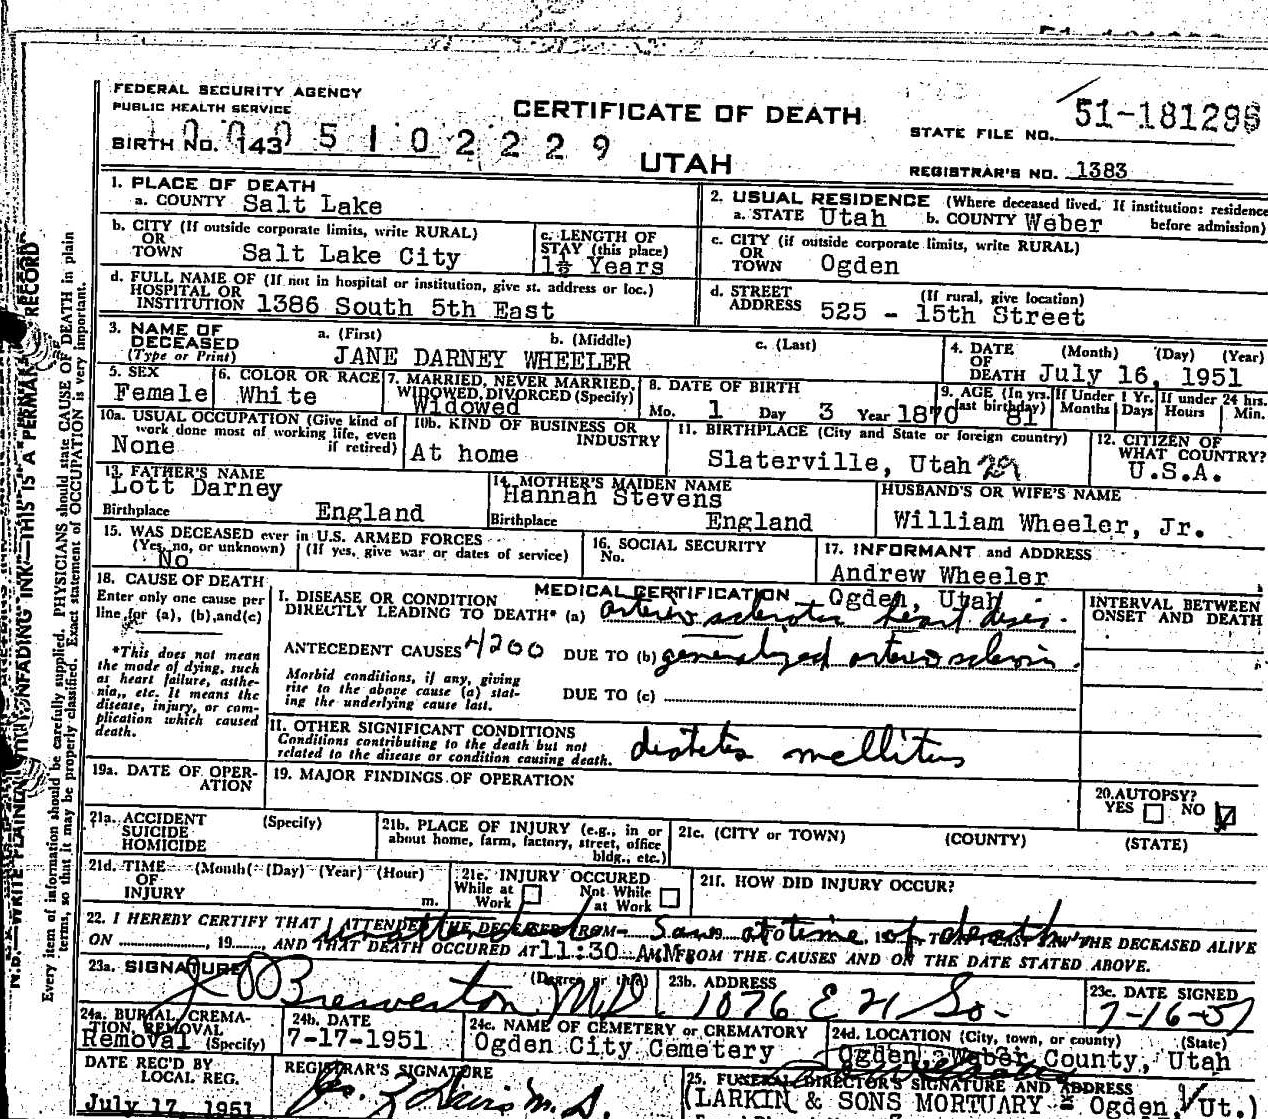 FEDERAL SECURITY AGENCY
PUBLIC HEALTH SERVICE
CERTIFICATE OF DEATH
STATE FILE NO. 51-181296
BIRTH NO. 143
0005102229
UTAH
REGISTRAR'S NO. 1383
1. PLACE OF DEATH
a. COUNTY Salt Lake
2. USUAL RESIDENCE (Where deceased lived. If institution: residence before admission)
a. STATE Utah b. COUNTY Weber
b. CITY (If outside corporate limits, write RURAL)
OR
TOWN Salt Lake City
c. LENGTH OF
STAY (this place)
1½ Years
c. CITY (if outside corporate limits, write RURAL)
OR
TOWN Ogden
d. FULL NAME OF (If not in hospital or institution, give st. address or loc.)
HOSPITAL OR
INSTITUTION 1386 South 5th East
d. STREET (If rural, give location)
ADDRESS 525 - 15th Street
3. NAME OF DECEASED
(Type or Print)
a. (First) b. (Middle) c. (Last)
JANE DARNEY WHEELER
4. DATE (Month) (Day) (Year)
OF
DEATH July 16, 1951
5. SEX
Female
6. COLOR OR RACE
White
7. MARRIED, NEVER MARRIED,
WIDOWED, DIVORCED (Specify)
Widowed
8. DATE OF BIRTH
Mo. 1 Day 3 Year 1870
9. AGE (In yrs. last birthday)
81
If Under 1 Yr.
Months Days
If under 24 hrs.
Hours Min.
10a. USUAL OCCUPATION (Give kind of
work done most of working life, even
if retired)
None
10b. KIND OF BUSINESS OR
INDUSTRY
At home
11. BIRTHPLACE (City and State or foreign country)
Slaterville, Utah 29
12. CITIZEN OF
WHAT COUNTRY?
U.S.A.
13. FATHER'S NAME
Lott Darney
Birthplace England
14. MOTHER'S MAIDEN NAME
Hannah Stevens
Birthplace England
HUSBAND'S OR WIFE'S NAME
William Wheeler, Jr.
15. WAS DECEASED ever in U.S. ARMED FORCES
(Yes, no, or unknown) (If yes, give war or dates of service)
No
16. SOCIAL SECURITY
No.
17. INFORMANT and ADDRESS
Andrew Wheeler
Ogden, Utah
18. CAUSE OF DEATH
Enter only one cause per
line for (a), (b), and (c)
*This does not mean
the mode of dying, such
as heart failure, asthe-
nia,, etc. It means the
disease, injury, or com-
plication which caused
death.
MEDICAL CERTIFICATION
I. DISEASE OR CONDITION
DIRECTLY LEADING TO DEATH* (a) arterio sclerotic heart dises.
ANTECEDENT CAUSES 4200 DUE TO (b) generalized arterio sclerosis.
Morbid conditions, if any, giving
rise to the above cause (a) stat-
ing the underlying cause last.
DUE TO (c)
INTERVAL BETWEEN
ONSET AND DEATH
II. OTHER SIGNIFICANT CONDITIONS
Conditions contributing to the death but not
related to the disease or condition causing death.
diabetes mellitus
19a. DATE OF OPER-
ATION
19. MAJOR FINDINGS OF OPERATION
20. AUTOPSY?
YES NO
21a. ACCIDENT (Specify)
SUICIDE
HOMICIDE
21b. PLACE OF INJURY (e.g., in or
about home, farm, factory, street, office
bldg., etc.)
21c. (CITY or TOWN) (COUNTY) (STATE)
21d. TIME (Month) (Day) (Year) (Hour)
OF
INJURY m.
21e. INJURY OCCURED
While at Work Not While at Work
21f. HOW DID INJURY OCCUR?
22. I HEREBY CERTIFY THAT I ATTENDED THE DECEASED FROM 19 TO 19 THAT I LAST SAW THE DECEASED ALIVE
unattended Saw at time of death
ON , 19 , AND THAT DEATH OCCURED AT 11:30 A.M. FROM THE CAUSES AND ON THE DATE STATED ABOVE.
23a. SIGNATURE (Degree or title)
Brewerton MD
23b. ADDRESS
1076 E 21 So.
23c. DATE SIGNED
7-16-51
24a. BURIAL, CREMA-
TION, REMOVAL
Removal (Specify)
24b. DATE
7-17-1951
24c. NAME OF CEMETERY or CREMATORY
Ogden City Cemetery
24d. LOCATION (City, town, or county) (State)
Ogden, Weber County, Utah
DATE REC'D BY
LOCAL REG.
July 17, 1951
REGISTRAR'S SIGNATURE
25. FUNERAL DIRECTOR'S SIGNATURE AND ADDRESS
(LARKIN & SONS MORTUARY - Ogden, Ut.)
N.B.—WRITE PLAINLY WITH UNFADING INK—THIS IS A PERMANENT RECORD
Every item of information should be carefully supplied. PHYSICIANS should state CAUSE OF DEATH in plain
terms, so that it may be properly classified. Exact statement of OCCUPATION is very important.